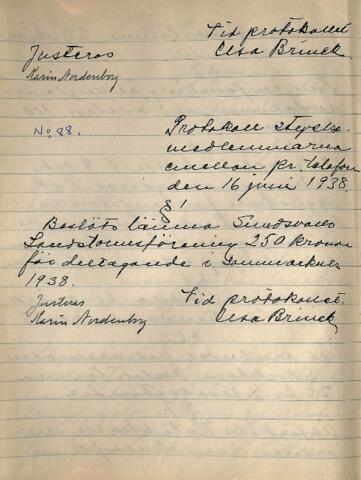 Vid protokollet
Justeras Elsa Brinck
Karin Nordenborg
No 88. Protokoll styrelse-
medlemmarna
emellan pr. telefon
den 16 juni 1938.
§1
Beslöts lämna Sundsvalls
Landstormsförening 250 kronor
för deltagande i
1938.
Justeras Vid protokollet
Karin Nordenborg Elsa Brinck